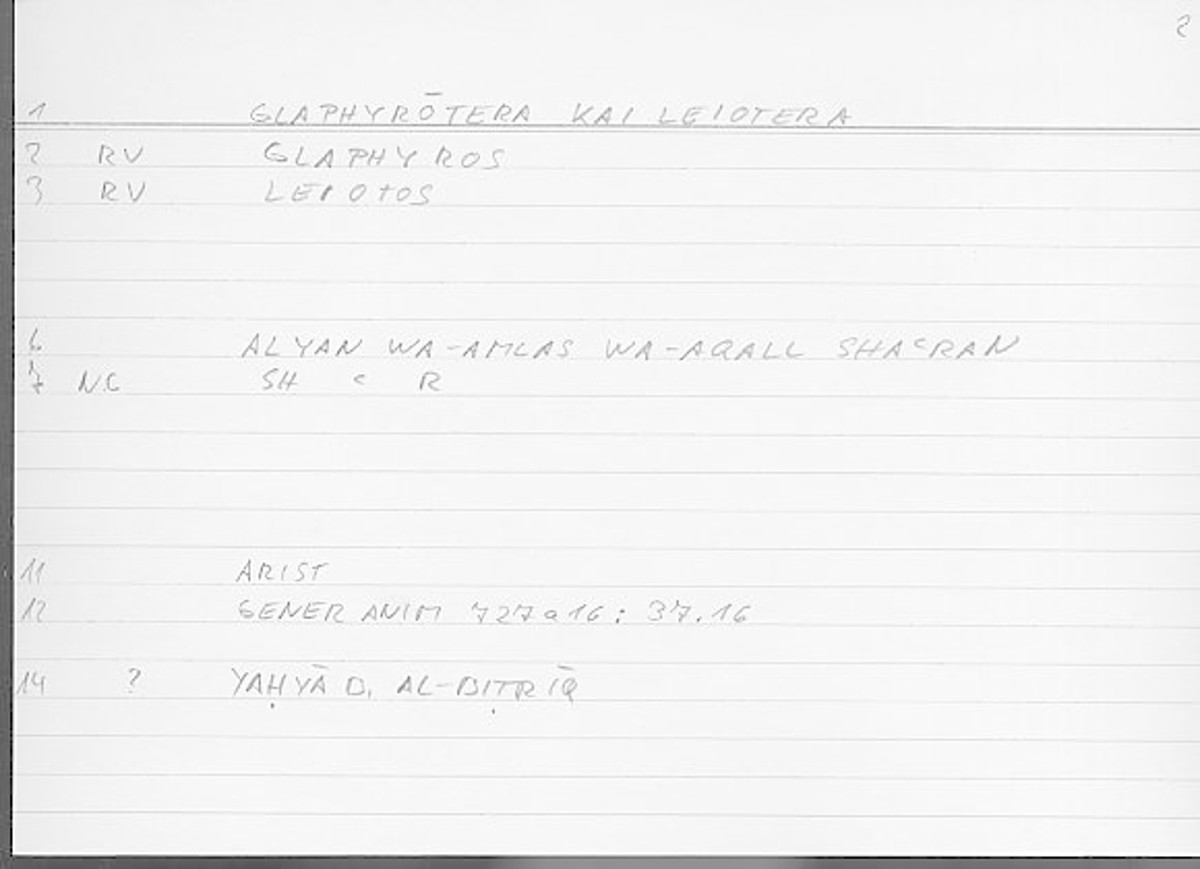 2
1 GLAPHYRŌTERA KAI LEIOTERA
2 RV GLAPHYROS
3 RV LEIOTOS
6 ALYAN WA-AMLAS WA-AQALL SHAʿRAN
7 NC SH ʿ R
11 ARIST
12 GENER ANIM 727a16: 37.16
14 ? YAḤYĀ B. AL-BIṬRĪQ